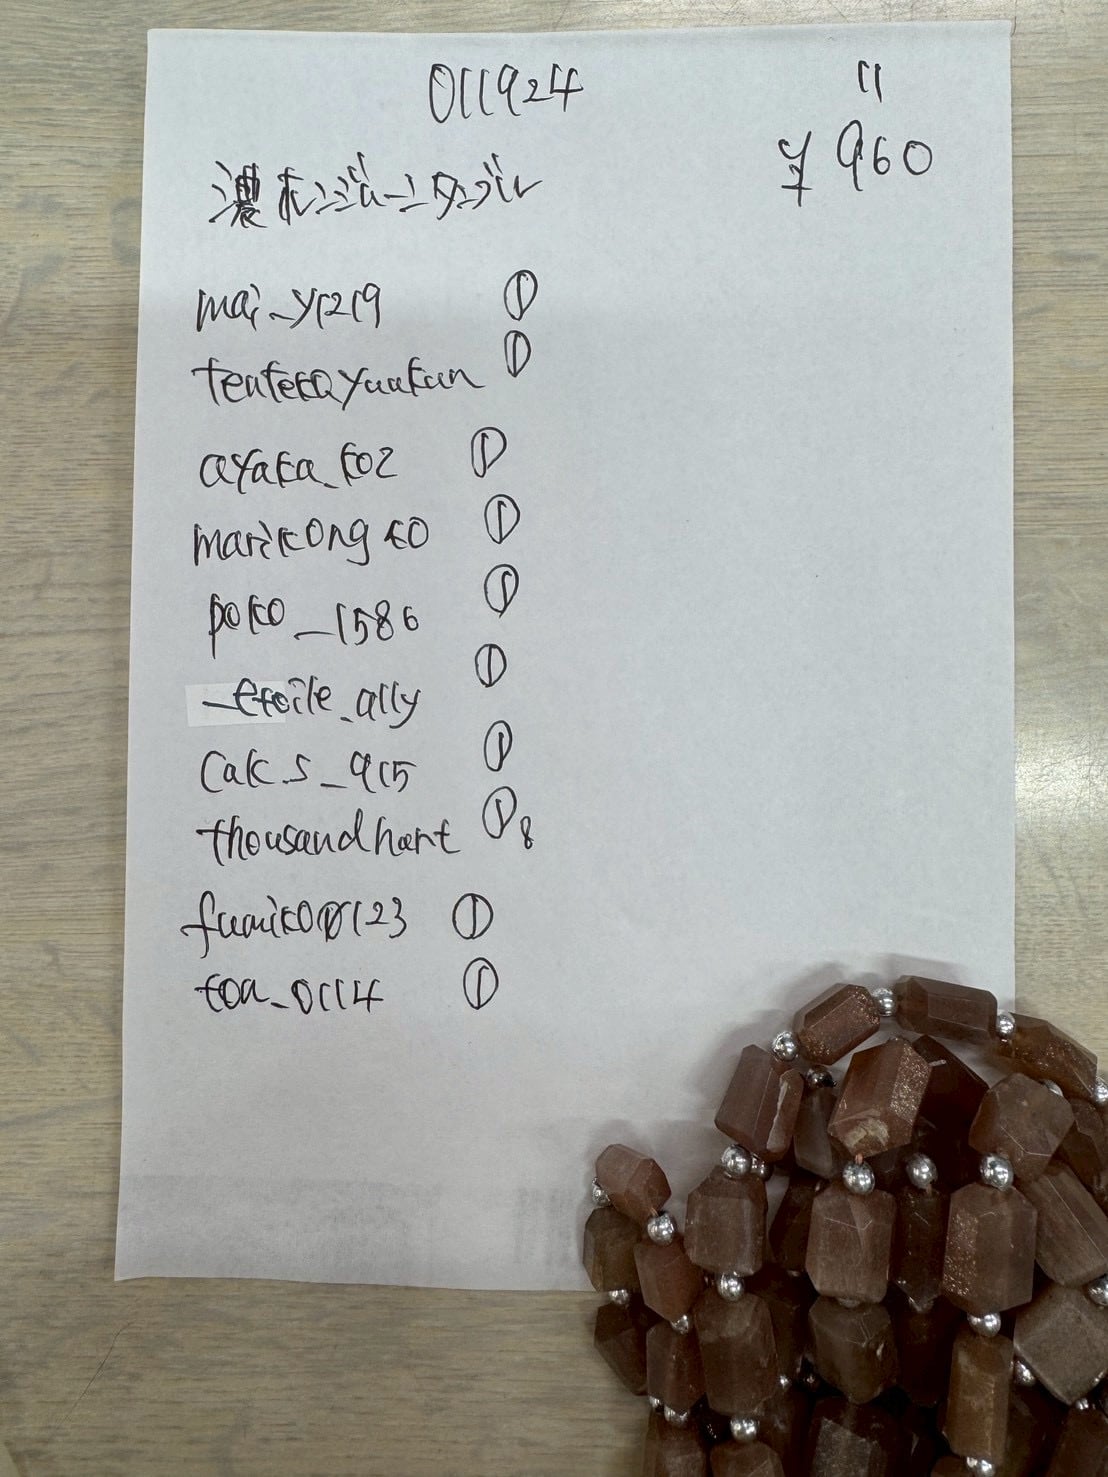 011924
11
¥960
濃オレンジムーンタンブル
mai_y1219 ①
teutekayuukun ①
ayaka_ko2 ①
marikongko ①
poko_1586 ①
_etoile_ally ①
calc.s_915 ①
thousandhart ① 8
fumiko0123 ①
toa_0114 ①